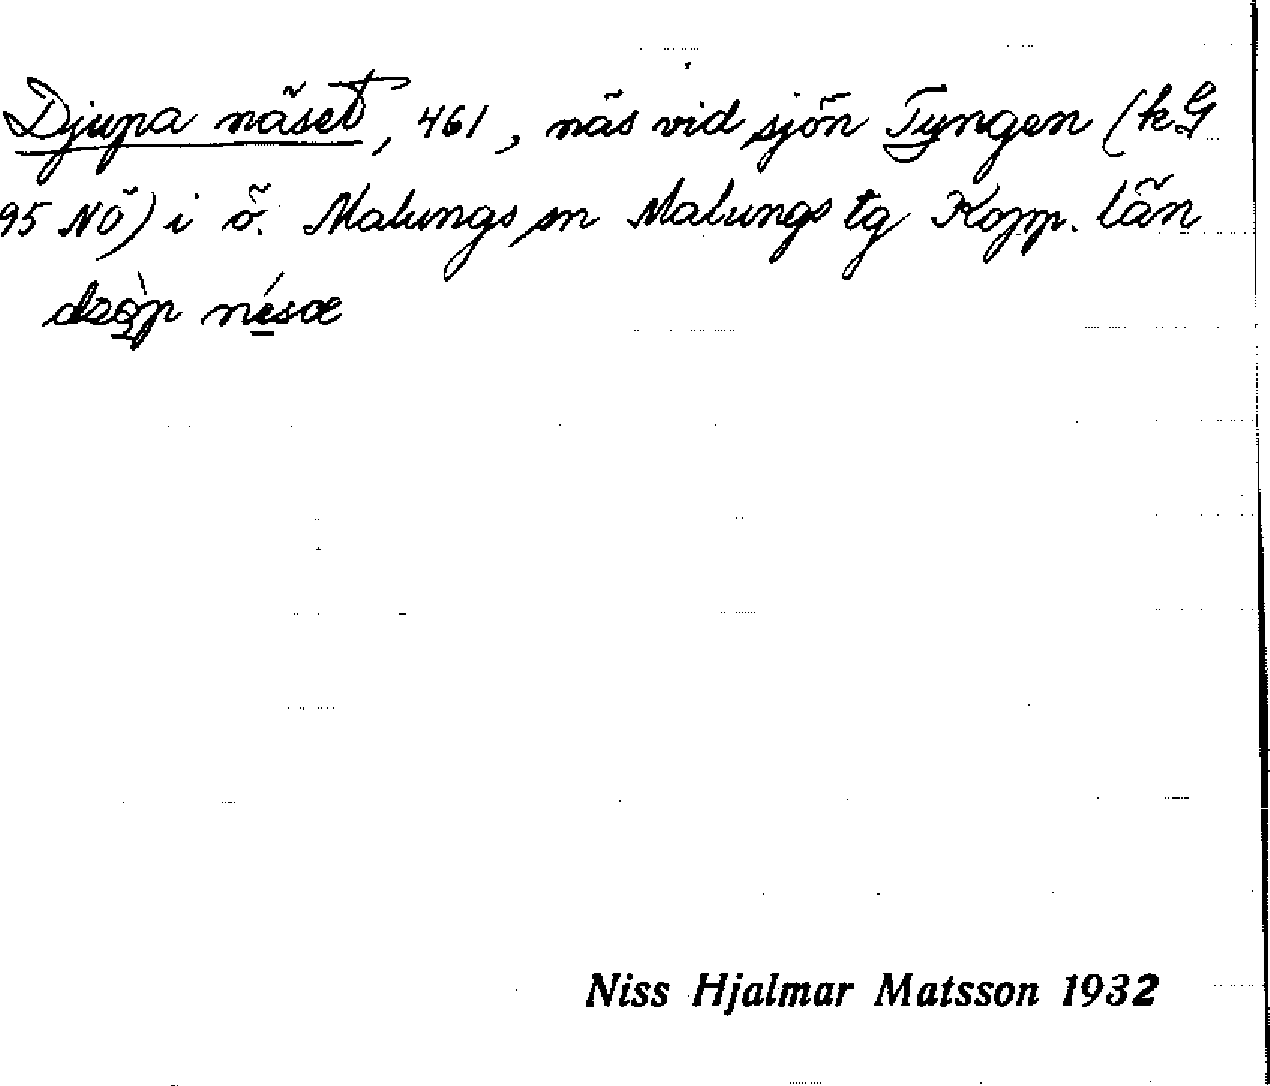 Djupa näset, 461, näs vid sjön Tyngen (kG
95 NÖ) i ö. Malungs sn Malungs tg Kopp. län
dzò̱p nésæ
Niss Hjalmar Matsson 1932